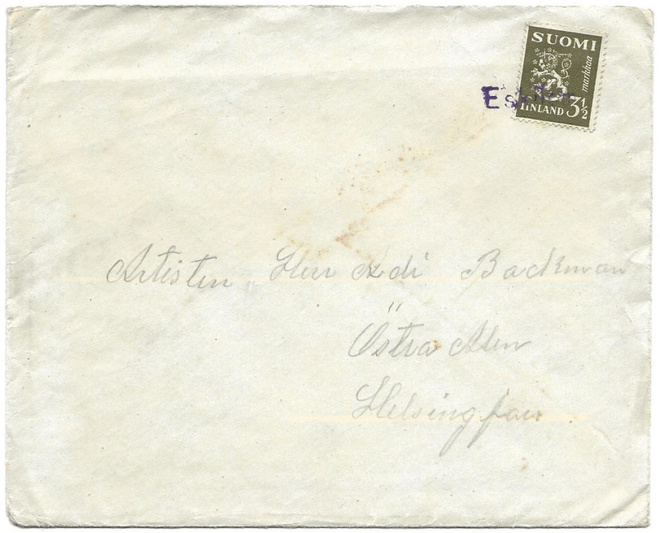 SUOMI
markkaa
FINLAND 3½
Artisten Herr Adi Backman
Östra Alen
Helsingfors